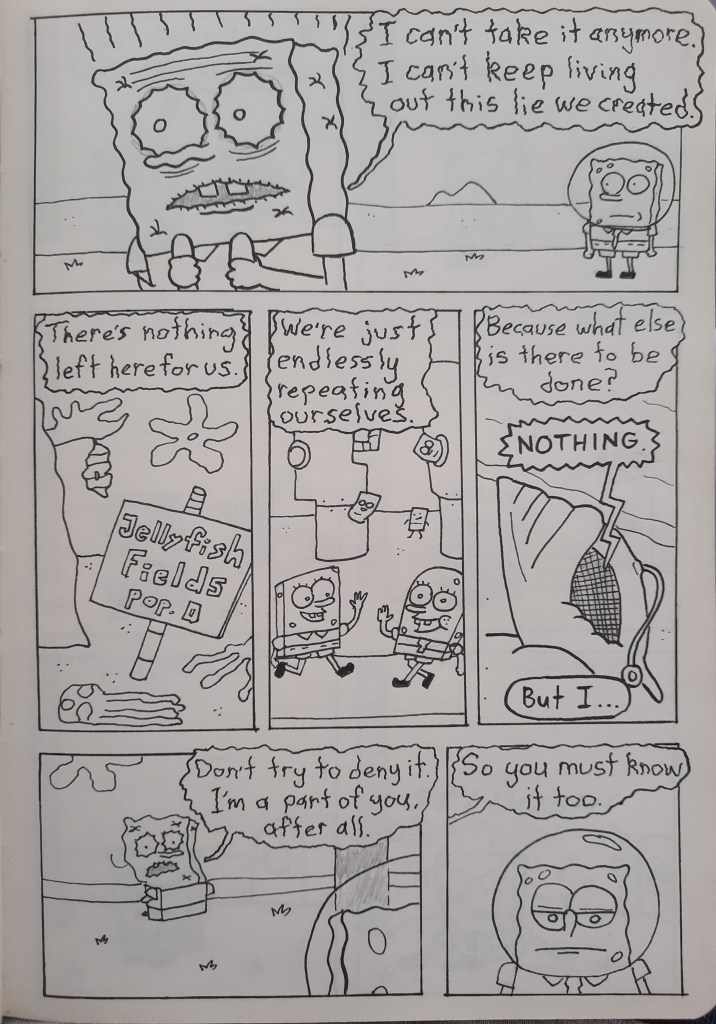 I can't take it anymore.
I can't keep living
out this lie we created.
There's nothing
left here for us.
We're just
endlessly
repeating
ourselves.
Because what else
is there to be
done?
NOTHING.
Jellyfish
Fields
POP. 0
But I...
Don't try to deny it.
I'm a part of you,
after all.
So you must know
it too.